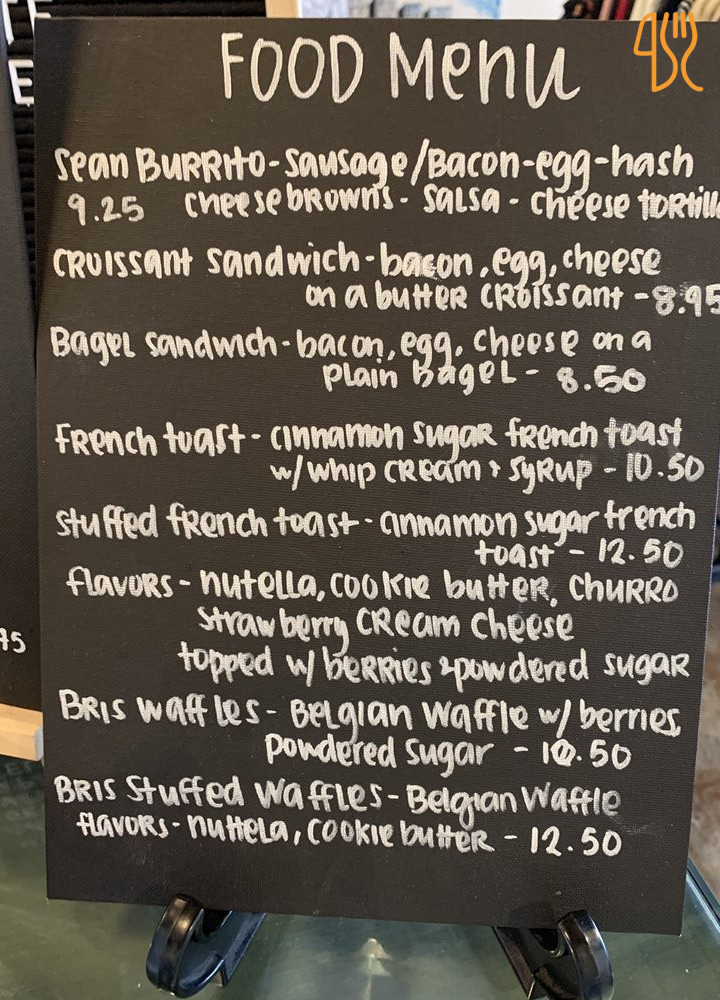 FOOD Menu
Sean BURRITO - Sausage/Bacon-egg-hash
9.25 cheese browns - Salsa - cheese
CROISSANT Sandwich - bacon, egg, cheese
on a butter CROissant - 8.95
Bagel sandwich - bacon, egg, cheese on a
plain bagel - 8.50
French toast - cinnamon sugar french toast
w/ whip cream & syrup - 10.50
stuffed french toast - cinnamon sugar french
toast - 12.50
flavors - nutella, cookie butter, CHURRO
Strawberry CReam Cheese
topped w/ berries & powdered sugar
BRIS waffles - BELGIAN Waffle w/ berries,
powdered sugar - 10.50
BRIS Stuffed Waffles - Belgian Waffle
flavors - nuttela, cookie butter - 12.50